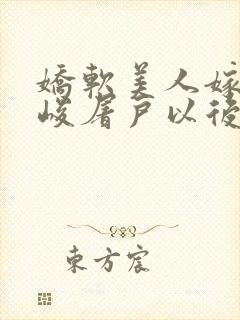 嬌軟美人嫁
峻屠戶以後
東方宸